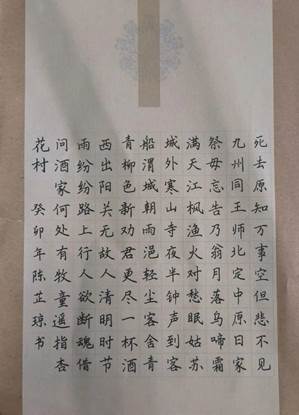 死去原知万事空但悲不见
九州同王师北定中原日家
祭毋忘告乃翁月落乌啼霜
满天江枫渔火对愁眠姑苏
城外寒山寺夜半钟声到客
船渭城朝雨浥轻尘客舍青
青柳色新劝君更尽一杯酒
西出阳关无故人清明时节
雨纷纷路上行人欲断魂借
问酒家何处有牧童遥指杏
花村 癸卯年陈芷琼书